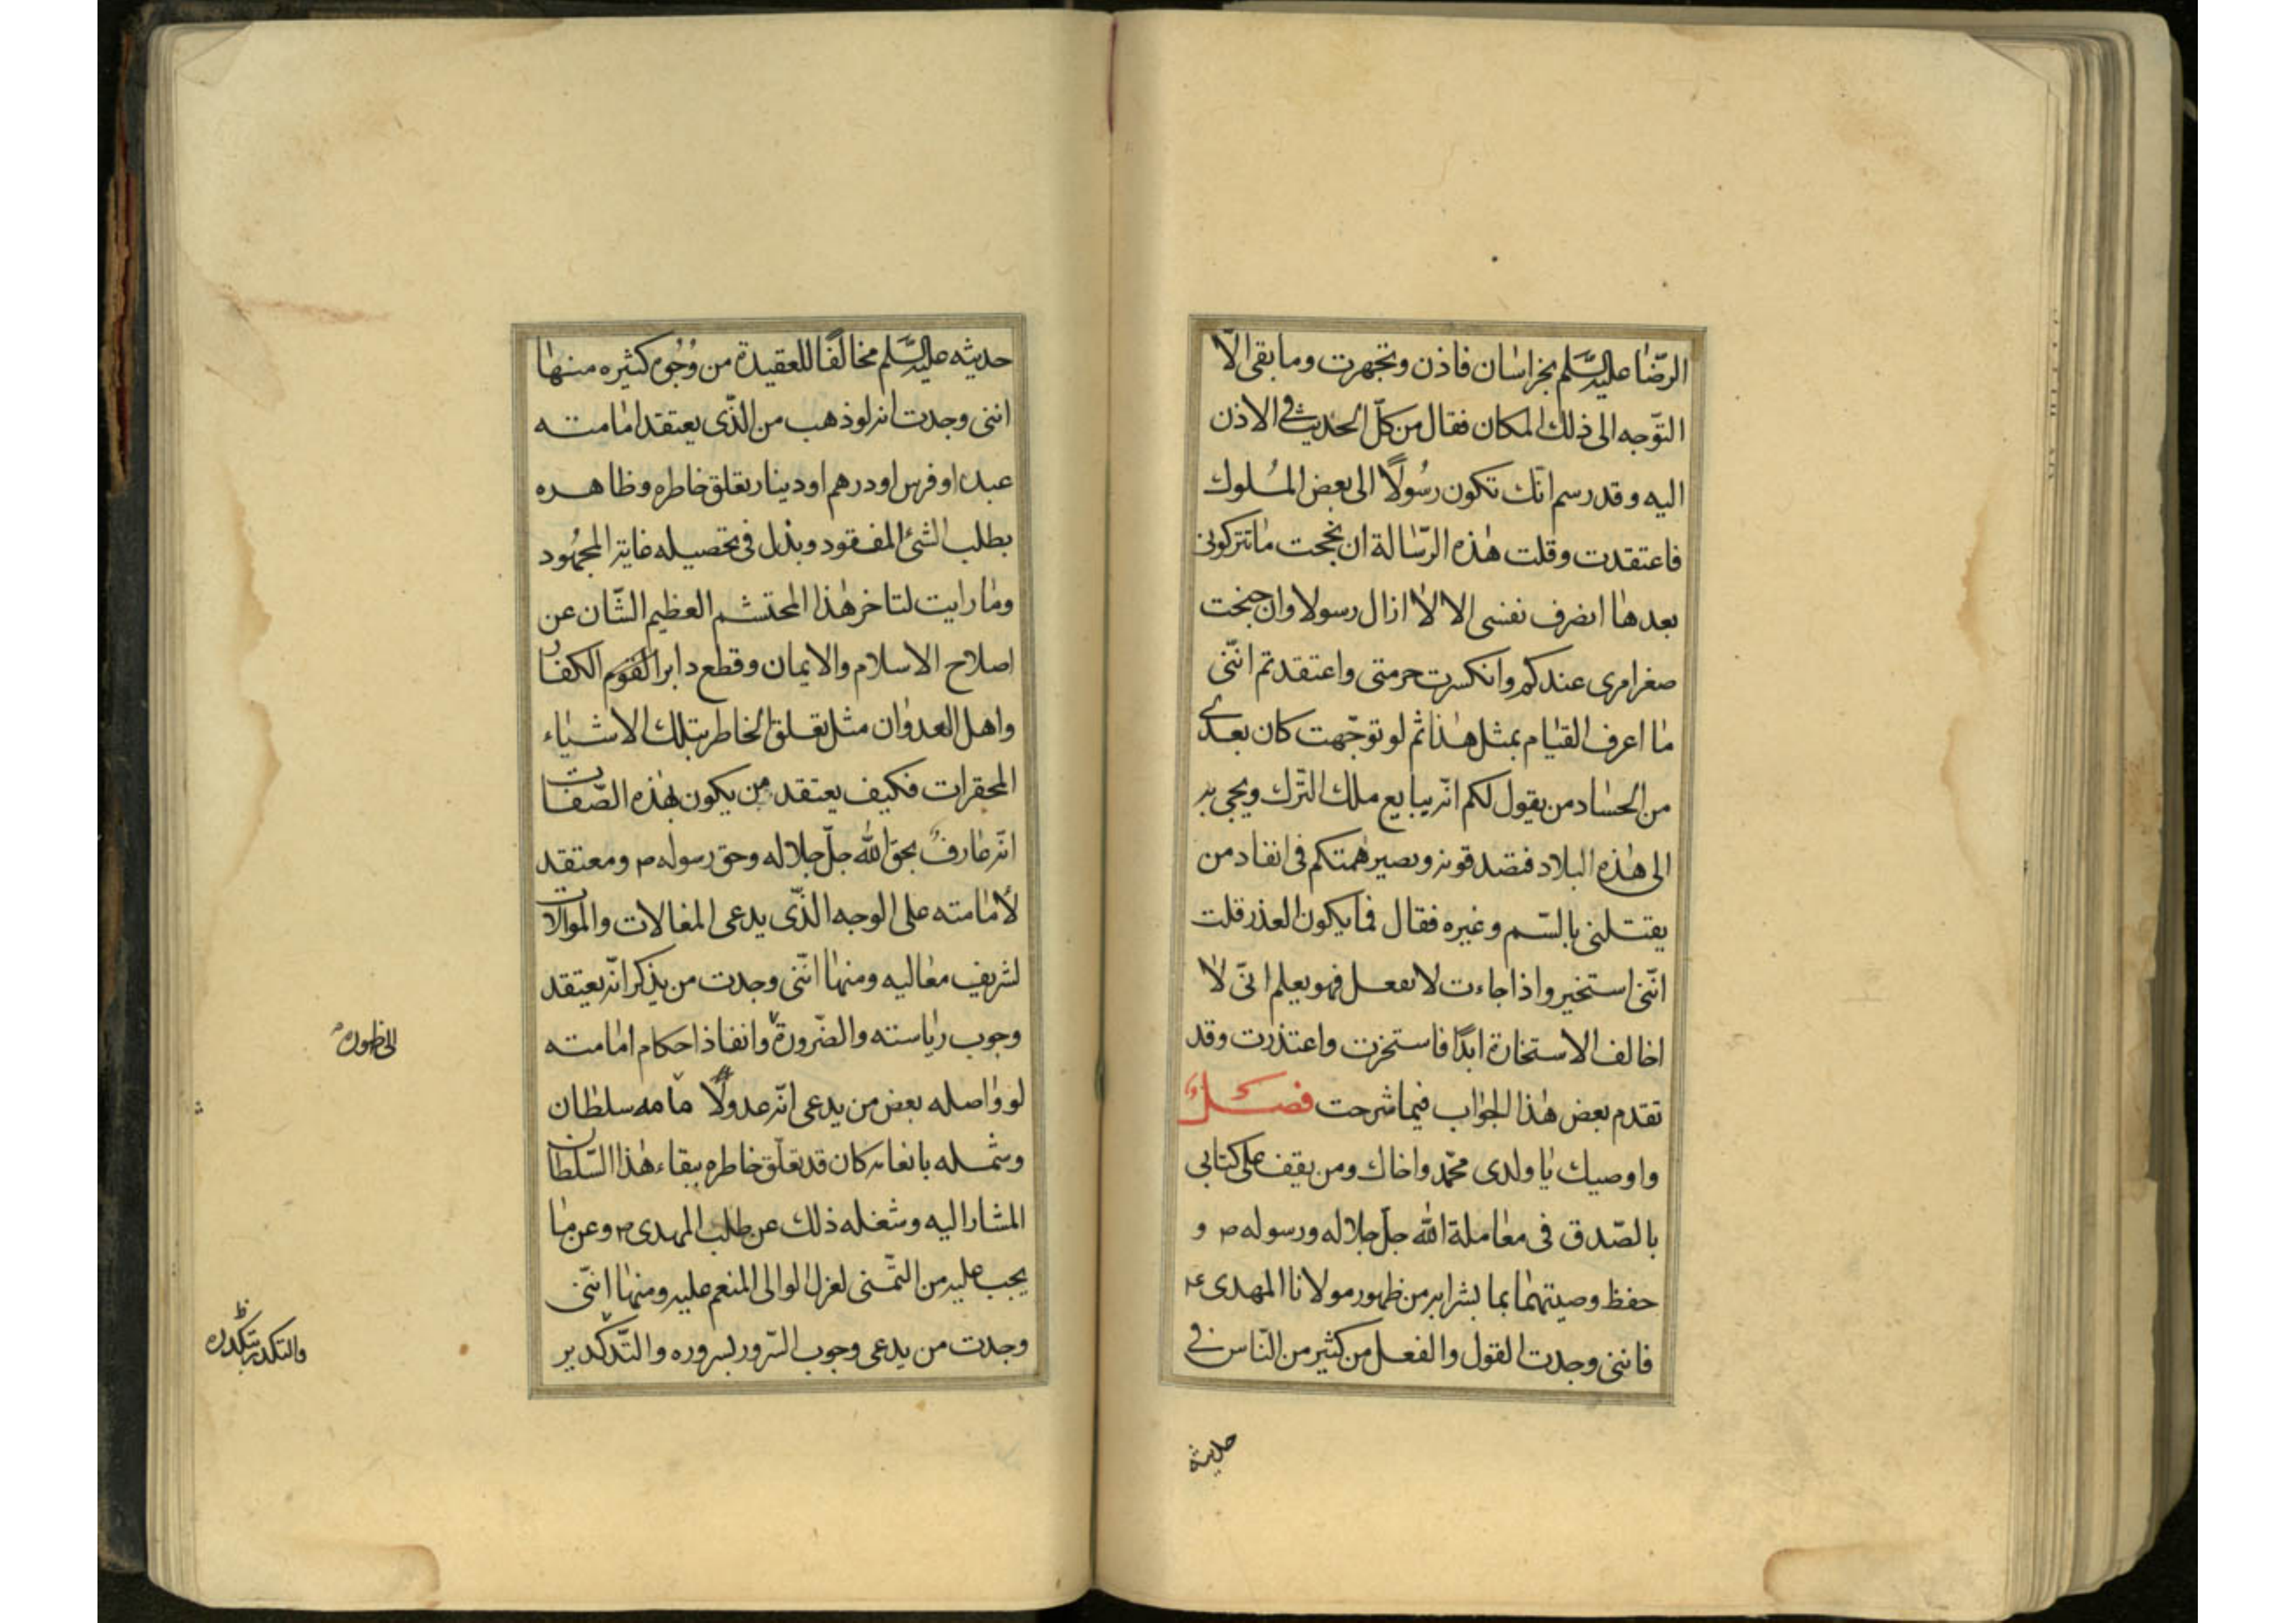 الرّضا عليه السّلم بخراسان فاذن وتجهرت وما بقى الّا
التوّجه الى ذلك المكان فقال من كلّ الحديث فى الاذن
اليه وقد رسم انّك تكون رسُولًا الى بعض المُلوك
فاعتقدت وقلت هذه الرّسالة ان نجحت ما تتركونى
بعدها اتصرف نفسى الا لا ازال رسولا وان جنحت
صغر امرى عندكم وانكسرت حرمتى واعتقدتم انّنى
ما اعرف القيام بمثل هذا ثم لو توجّهت كان بعدى
من الحساد من يقول لكم انّه يبايع ملك التّرك ويجى به
الى هذه البلاد فتصدقونه ويصير همتكم فى انفاد من
يقتلنى بالسّم وغيره فقال فما يكون العذر قلت
انّنى استخير واذا جاءت لا تفعل فهو يعلم انّى لا
اخالف الاستخارة ابدًا فاستخرت واعتذرت وقد
تقدم بعض هذا الجواب فيما شرحت فصل
واوصيك يا ولدى محمّد واخاك ومن يقف على كتابى
بالصّدق فى معاملة الله جلّ جلاله ورسوله ص و
حفظ وصيتهما بما بشرا به من ظهور مولانا المهدى ع
فاننى وجدت القول والفعل من كثير من النّاس فى
حديثه
حديثه عليه السّلم مخالفًا للعقيدة من وُجُوه كثيره منها
اننى وجدت انه لو ذهب من الذّى يعتقد امامته
عبد او فرس او درهم او دينار تعلق خاطره وظاهره
بطلب الشئ المفقود وبذل فى تحصيله غاية المجهُود
وما رايت لتاخر هذا المحتشم العظيم الشّان عن
اصلاح الاسلام والايمان وقطع دابر القوم الكفار
واهل العدوان مثل تعلق الخاطر بتلك الاشياء
المحقرات فكيف يعتقد من يكون بهذه الصّفات
انّه عارفٌ بحق الله جلّ جلاله وحق رسوله ص ومعتقد
لأمامته على الوجه الذّى يدعى المغالات والموالات
لشريف معاليه ومنها انّنى وجدت من يذكر انّه يعتقد
وجوب رياسته والضّرورة وانفاذ احكام امامته
الى ظهوره
لو واصله بعض من يدعى انّه عدوّلًا مامه سلطان
وشمله بانعامه كان قد تعلّق خاطره ببقاء هذا السّلطان
المشار اليه وشغله ذلك عن طلب المهدى ص وعن ما
يجب عليه من التّمنى لعزل الوالى المنعم عليه ومنها انّنى
وجدت من يدعى وجوب السّرور لسروره والتّدكدير
والتكدر بتكدره